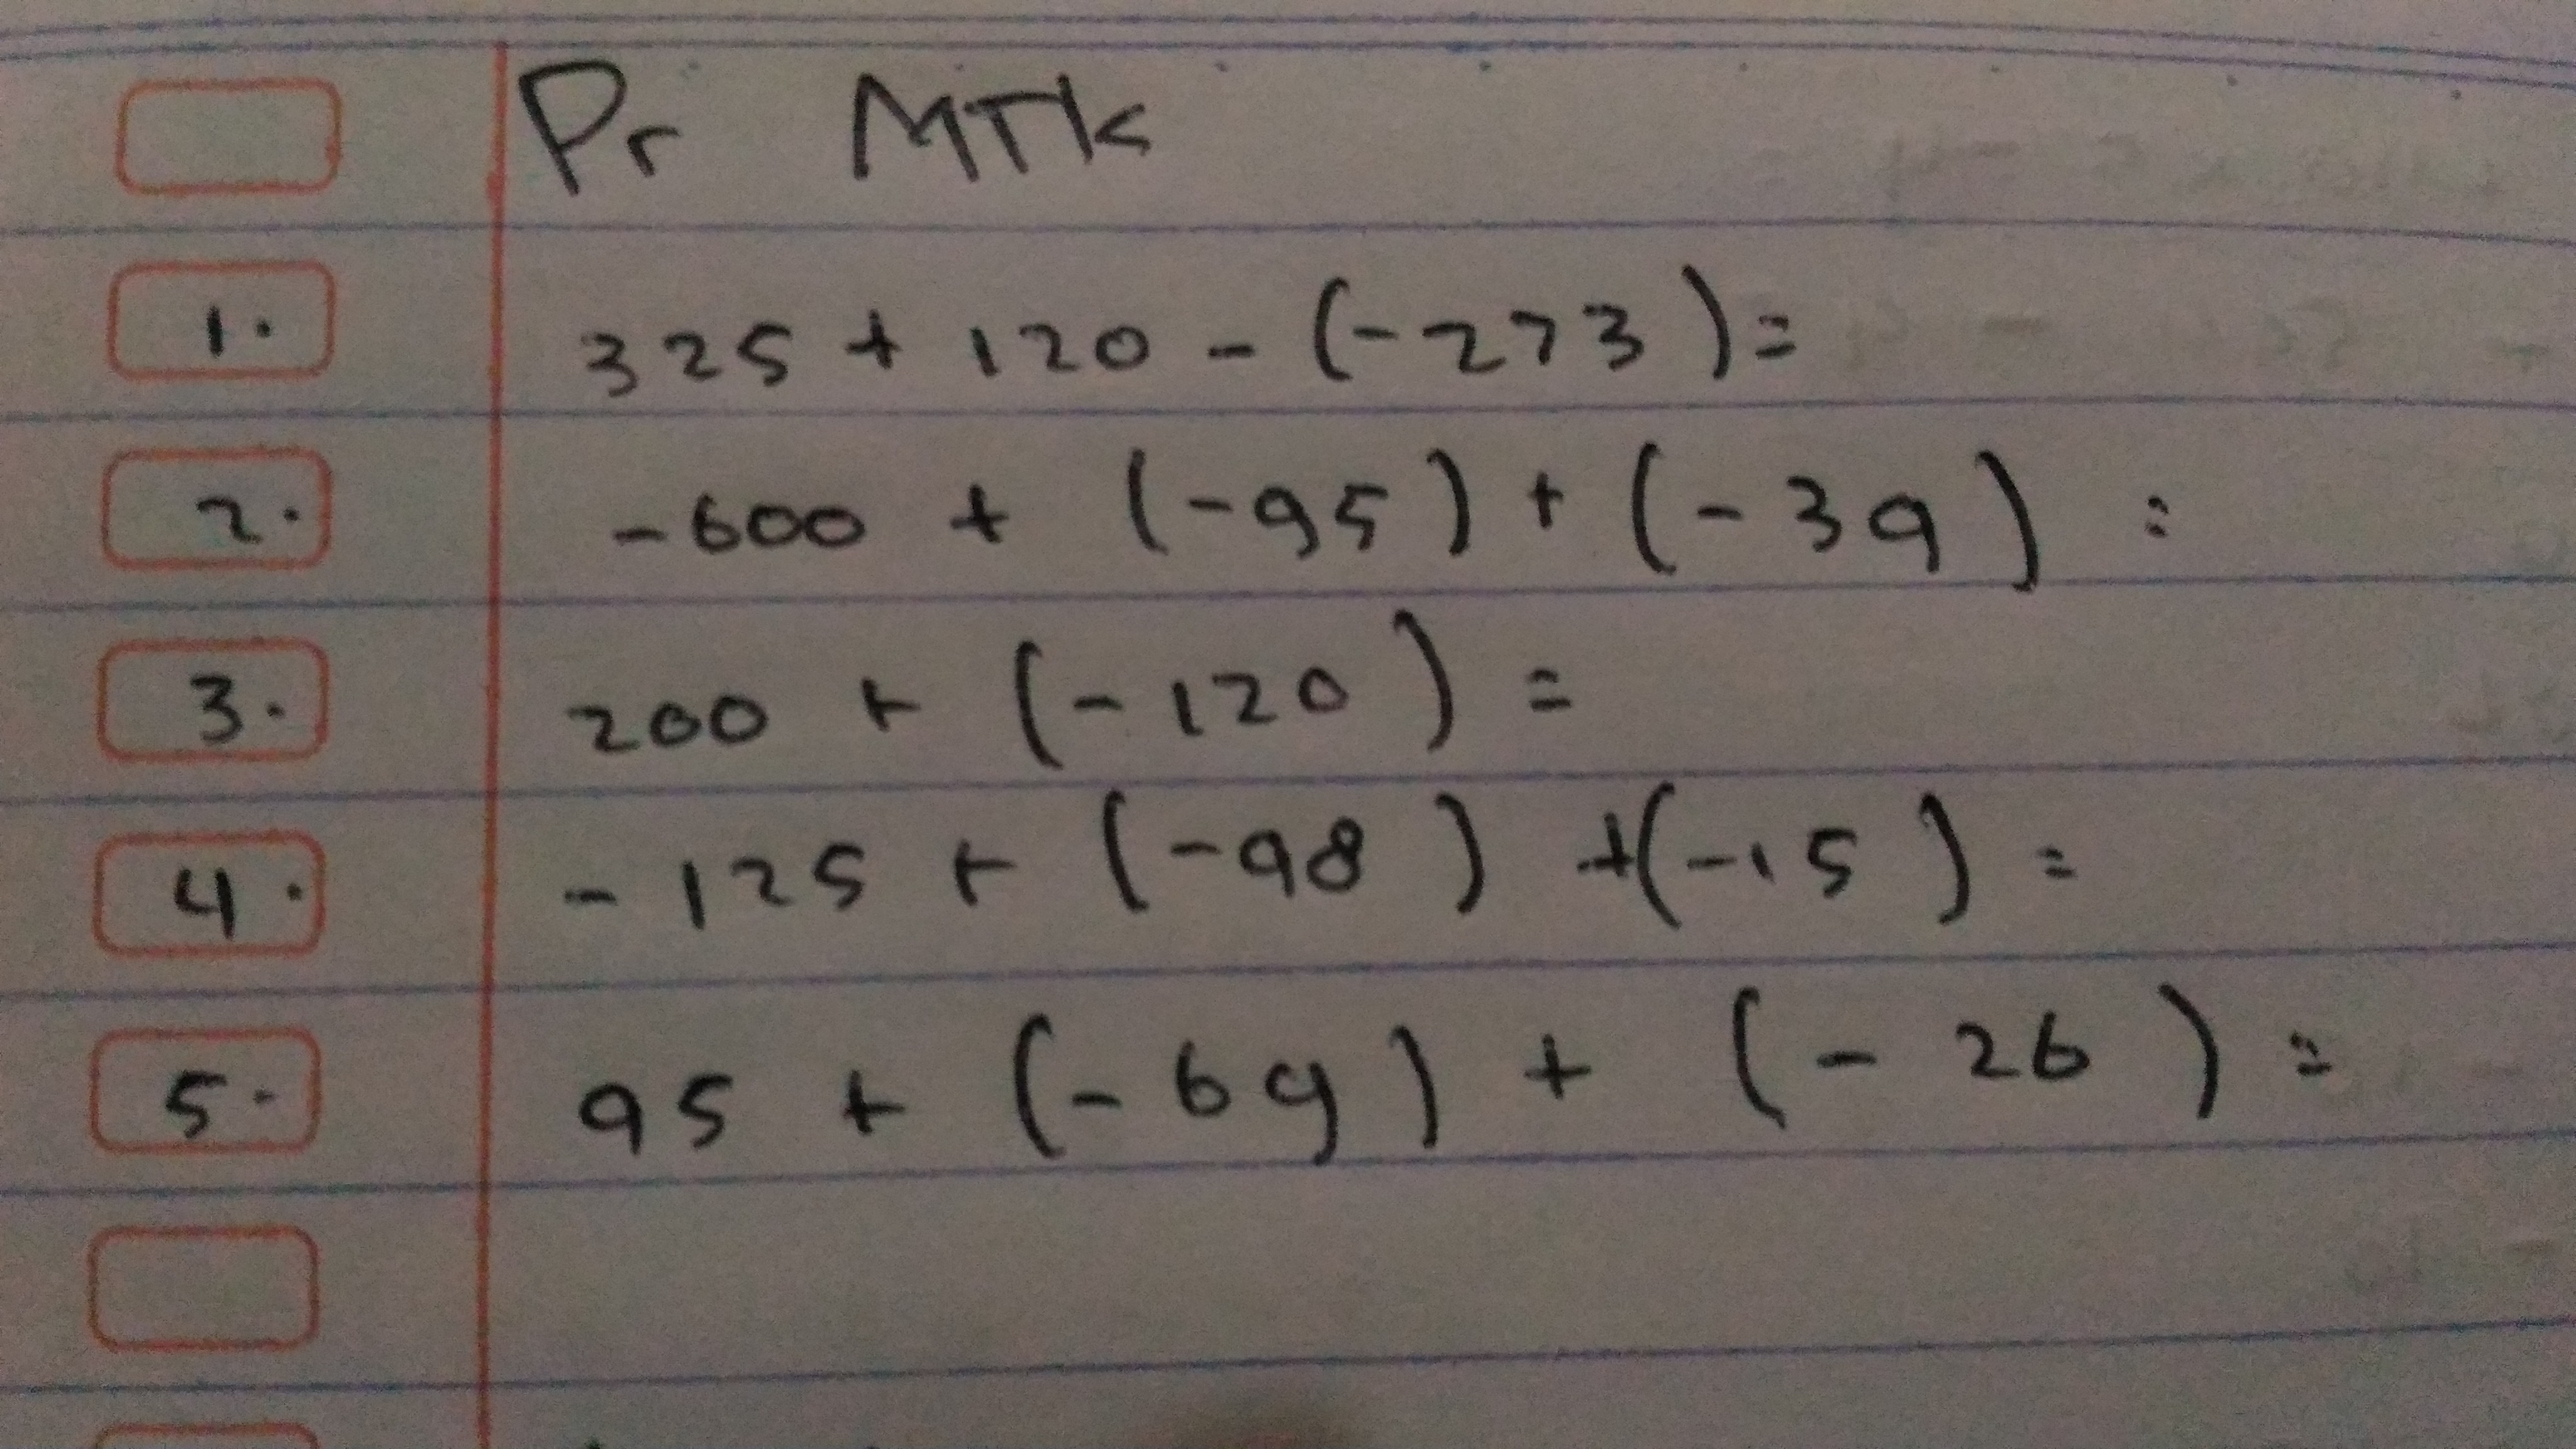 Pr MTK
1. 325 + 120 - (-273) =
2. -600 + (-95) + (-39) =
3. 200 + (-120) =
4. -125 + (-98) + (-15) =
5. 95 + (-69) + (-26) =